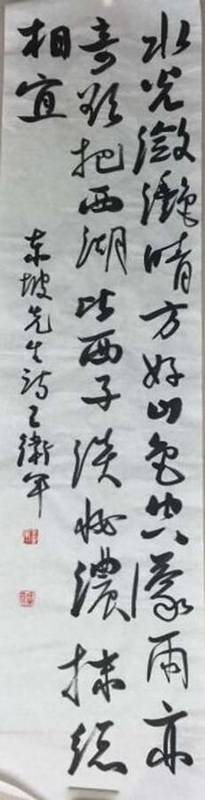 水光瀲灩晴方好山色空濛雨亦
奇欲把西湖比西子淡妝濃抹總
相宜
东坡先生诗